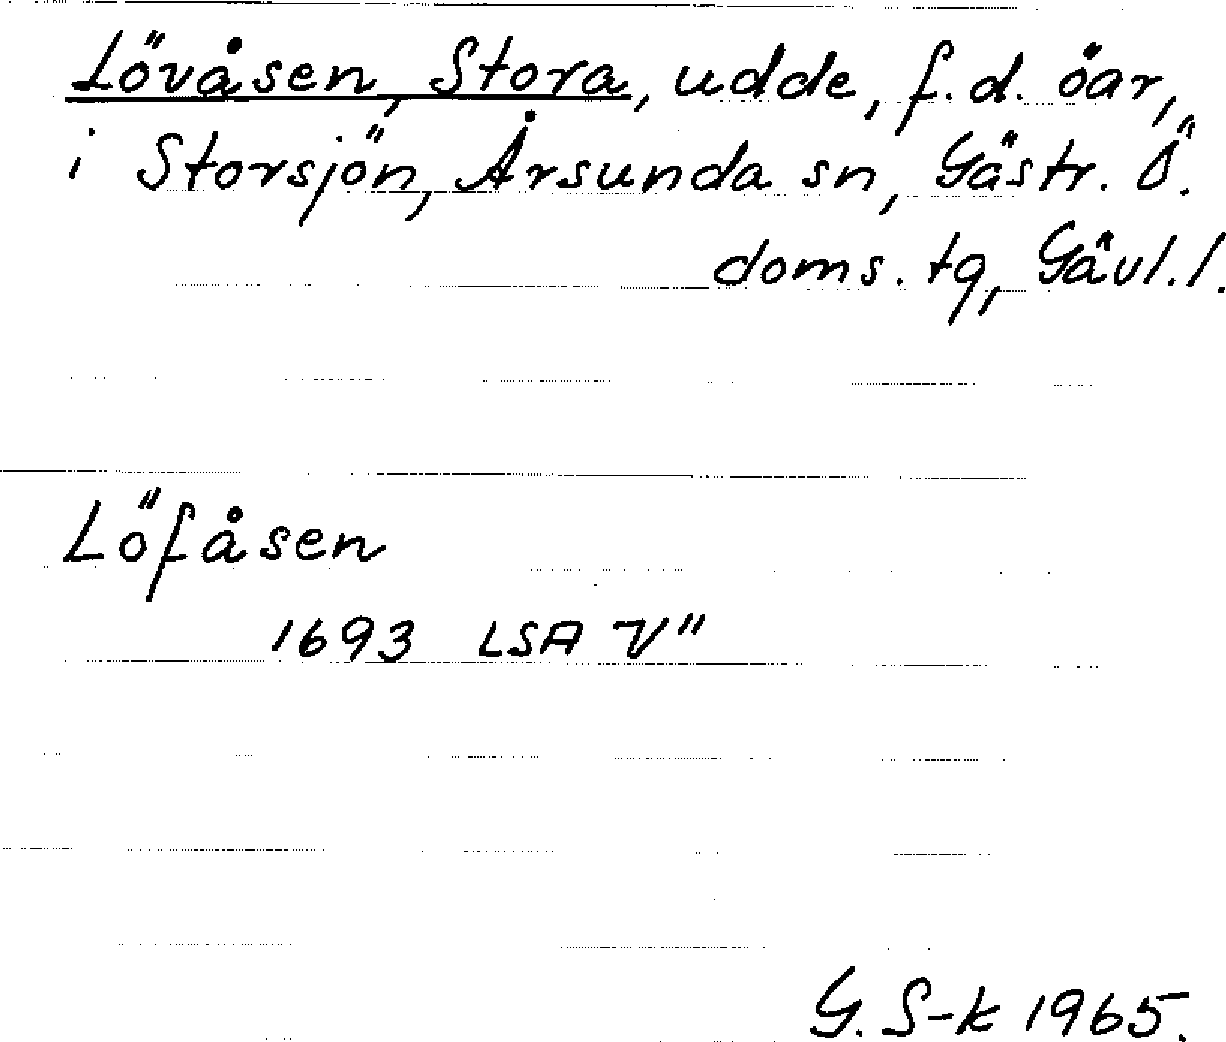 Lövåsen, Stora, udde, f.d. öar,
i Storsjön, Årsunda sn, Gästr. Ö.
doms. tg, Gävl. l.
Löfåsen
1693 LSA V"
G. S-k 1965.